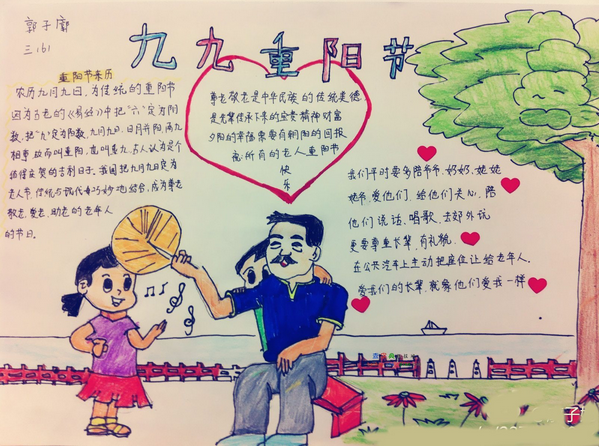 郭子廓
三(6)
九九重阳节
重阳节来历
农历九月九日,为传统的重阳节
因为古老的《易经》中把“六”定为阴
数,把“九”定为阳数,九月九日,日月并阳,两九
相重,故而叫重阳,也叫重九,古人认为是个
值得庆贺的吉利日子。我国把九月九日定为
老人节,传统与现代巧妙地结合,成为尊老
敬老、爱老、助老的老年人
的节日。
尊老敬老是中华民族的传统美德
是先辈传承下来的宝贵精神财富
夕阳的幸福需要有朝阳的回报
祝所有的老人重阳节
快
乐
我们平时要多陪爷爷、奶奶、姥姥
姥爷,爱他们,给他们关心,陪
他们说话、唱歌、去郊外玩
更要尊重长辈,有礼貌、
在公共汽车上主动把座位让给老年人。
爱我们的长辈,就像他们爱我一样
子